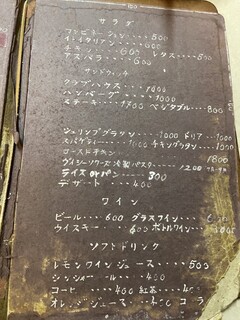 サラダ
コンビネーション......500
イタリアン......600
チキン......600 レタス......500
アスパラ......600
サンドウィッチ
クラブハウス......1000
ハンバーグ......1000
ステーキ......1700 ベジタブル......800
シュリンプグラタン......1000 ドリア...1000
スパゲティー......1000 チキングラタン...1000
ローストチキン......1800
ヴィシーソワーズ 冷製パスタ......1200
ライス or パン......300
デザート......400
ワイン
ビール......600 グラスワイン...600
ウイスキー......600 ボトルワイン
ソフトドリンク
レモンワインジュース......500
ジンジャエール......400
コーヒー......400 紅茶......400
オレンジジュース......400 コーラ